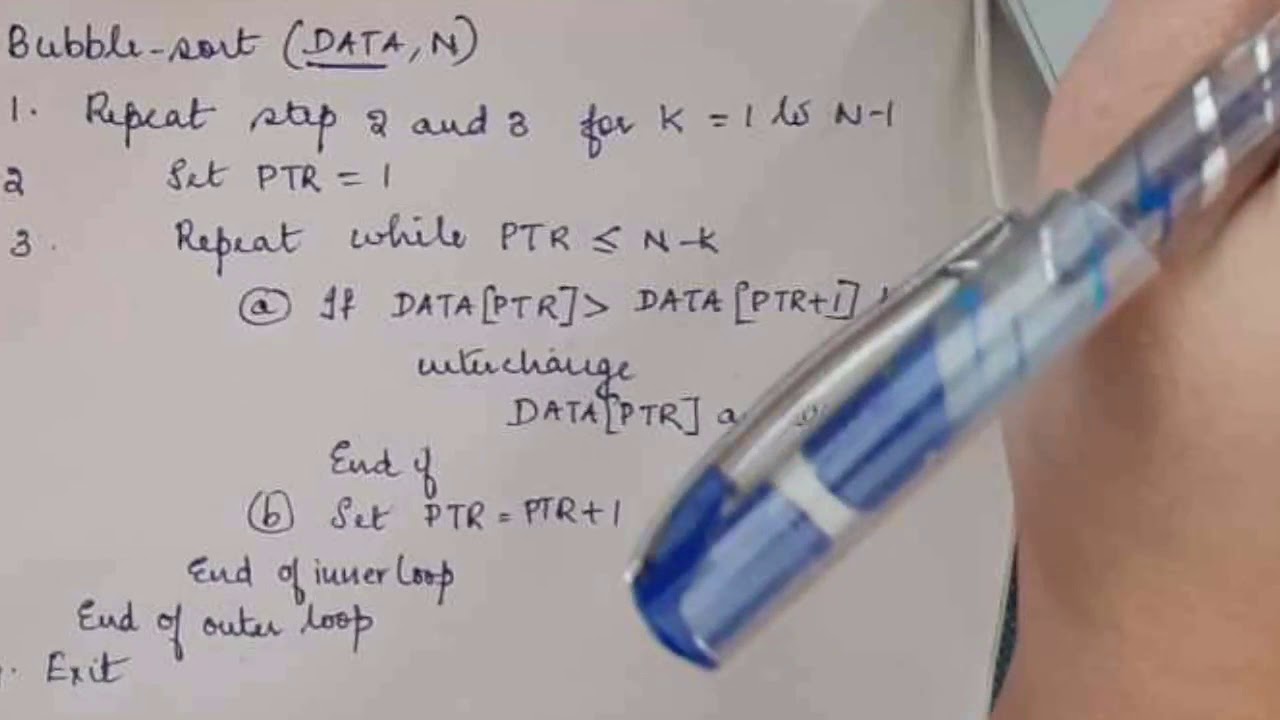 Bubble-sort (DATA, N)
1. Repeat step 2 and 3 for K = 1 to N-1
2 Set PTR = 1
3. Repeat while PTR ≤ N-K
(a) If DATA[PTR] > DATA [PTR+1]
interchange
DATA[PTR]
End if
(b) Set PTR = PTR+1
End of inner loop
End of outer loop
Exit